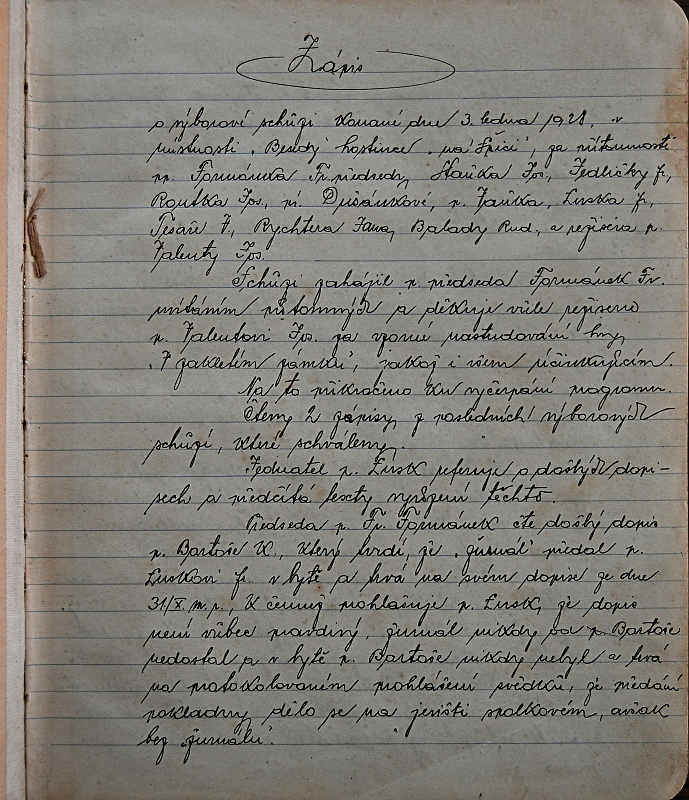 Zápis
o výborové schůzi konané dne 3. ledna 1928, v
místnosti „Besedy“ hostince „na Špici“, za přítomnosti
pp. Formánka Fr. předsedy, Staňka Jos., Jedličky fr,
Routka Jos., pí. Dušánkové, p. Jaňka, Luska fr,
Tesaře F., Rychtera Jana, Balady Rud., a režiséra p.
Valenty Jos.
Schůzi zahájil p. předseda Formánek Fr.
uvítáním přítomných a děkuje vřele režiseru
p. Valentovi Jos. za vzorné nastudování hry,
„V zakletém zámku“, jakož i všem účinkujícím.
Na to přikročeno ku vyčerpání programu.
Čteny 2 zápisy z posledních výborových
schůzí, které schváleny.
Jednatel p. Lusk referuje o došlých dopi-
sech a předčítá texty vyřízení těchto.
Předseda p. Fr. Formánek čte došlý dopis
p. Bartoše K., který tvrdí, že „žurnál“ předal p.
Luskovi fr. v bytě a trvá na svém dopise ze dne
31/X. m. r., K čemuž prohlašuje p. Lusk, že dopis
není vůbec pravdivý, žurnál nikdy od p. Bartoše
nedostal a v bytě p. Bartoše nikdy nebyl a trvá
na protokolovaném prohlášení svědků, že předání
pokladny dělo se na jevišti spolkovém, avšak
bez „žurnálu“.